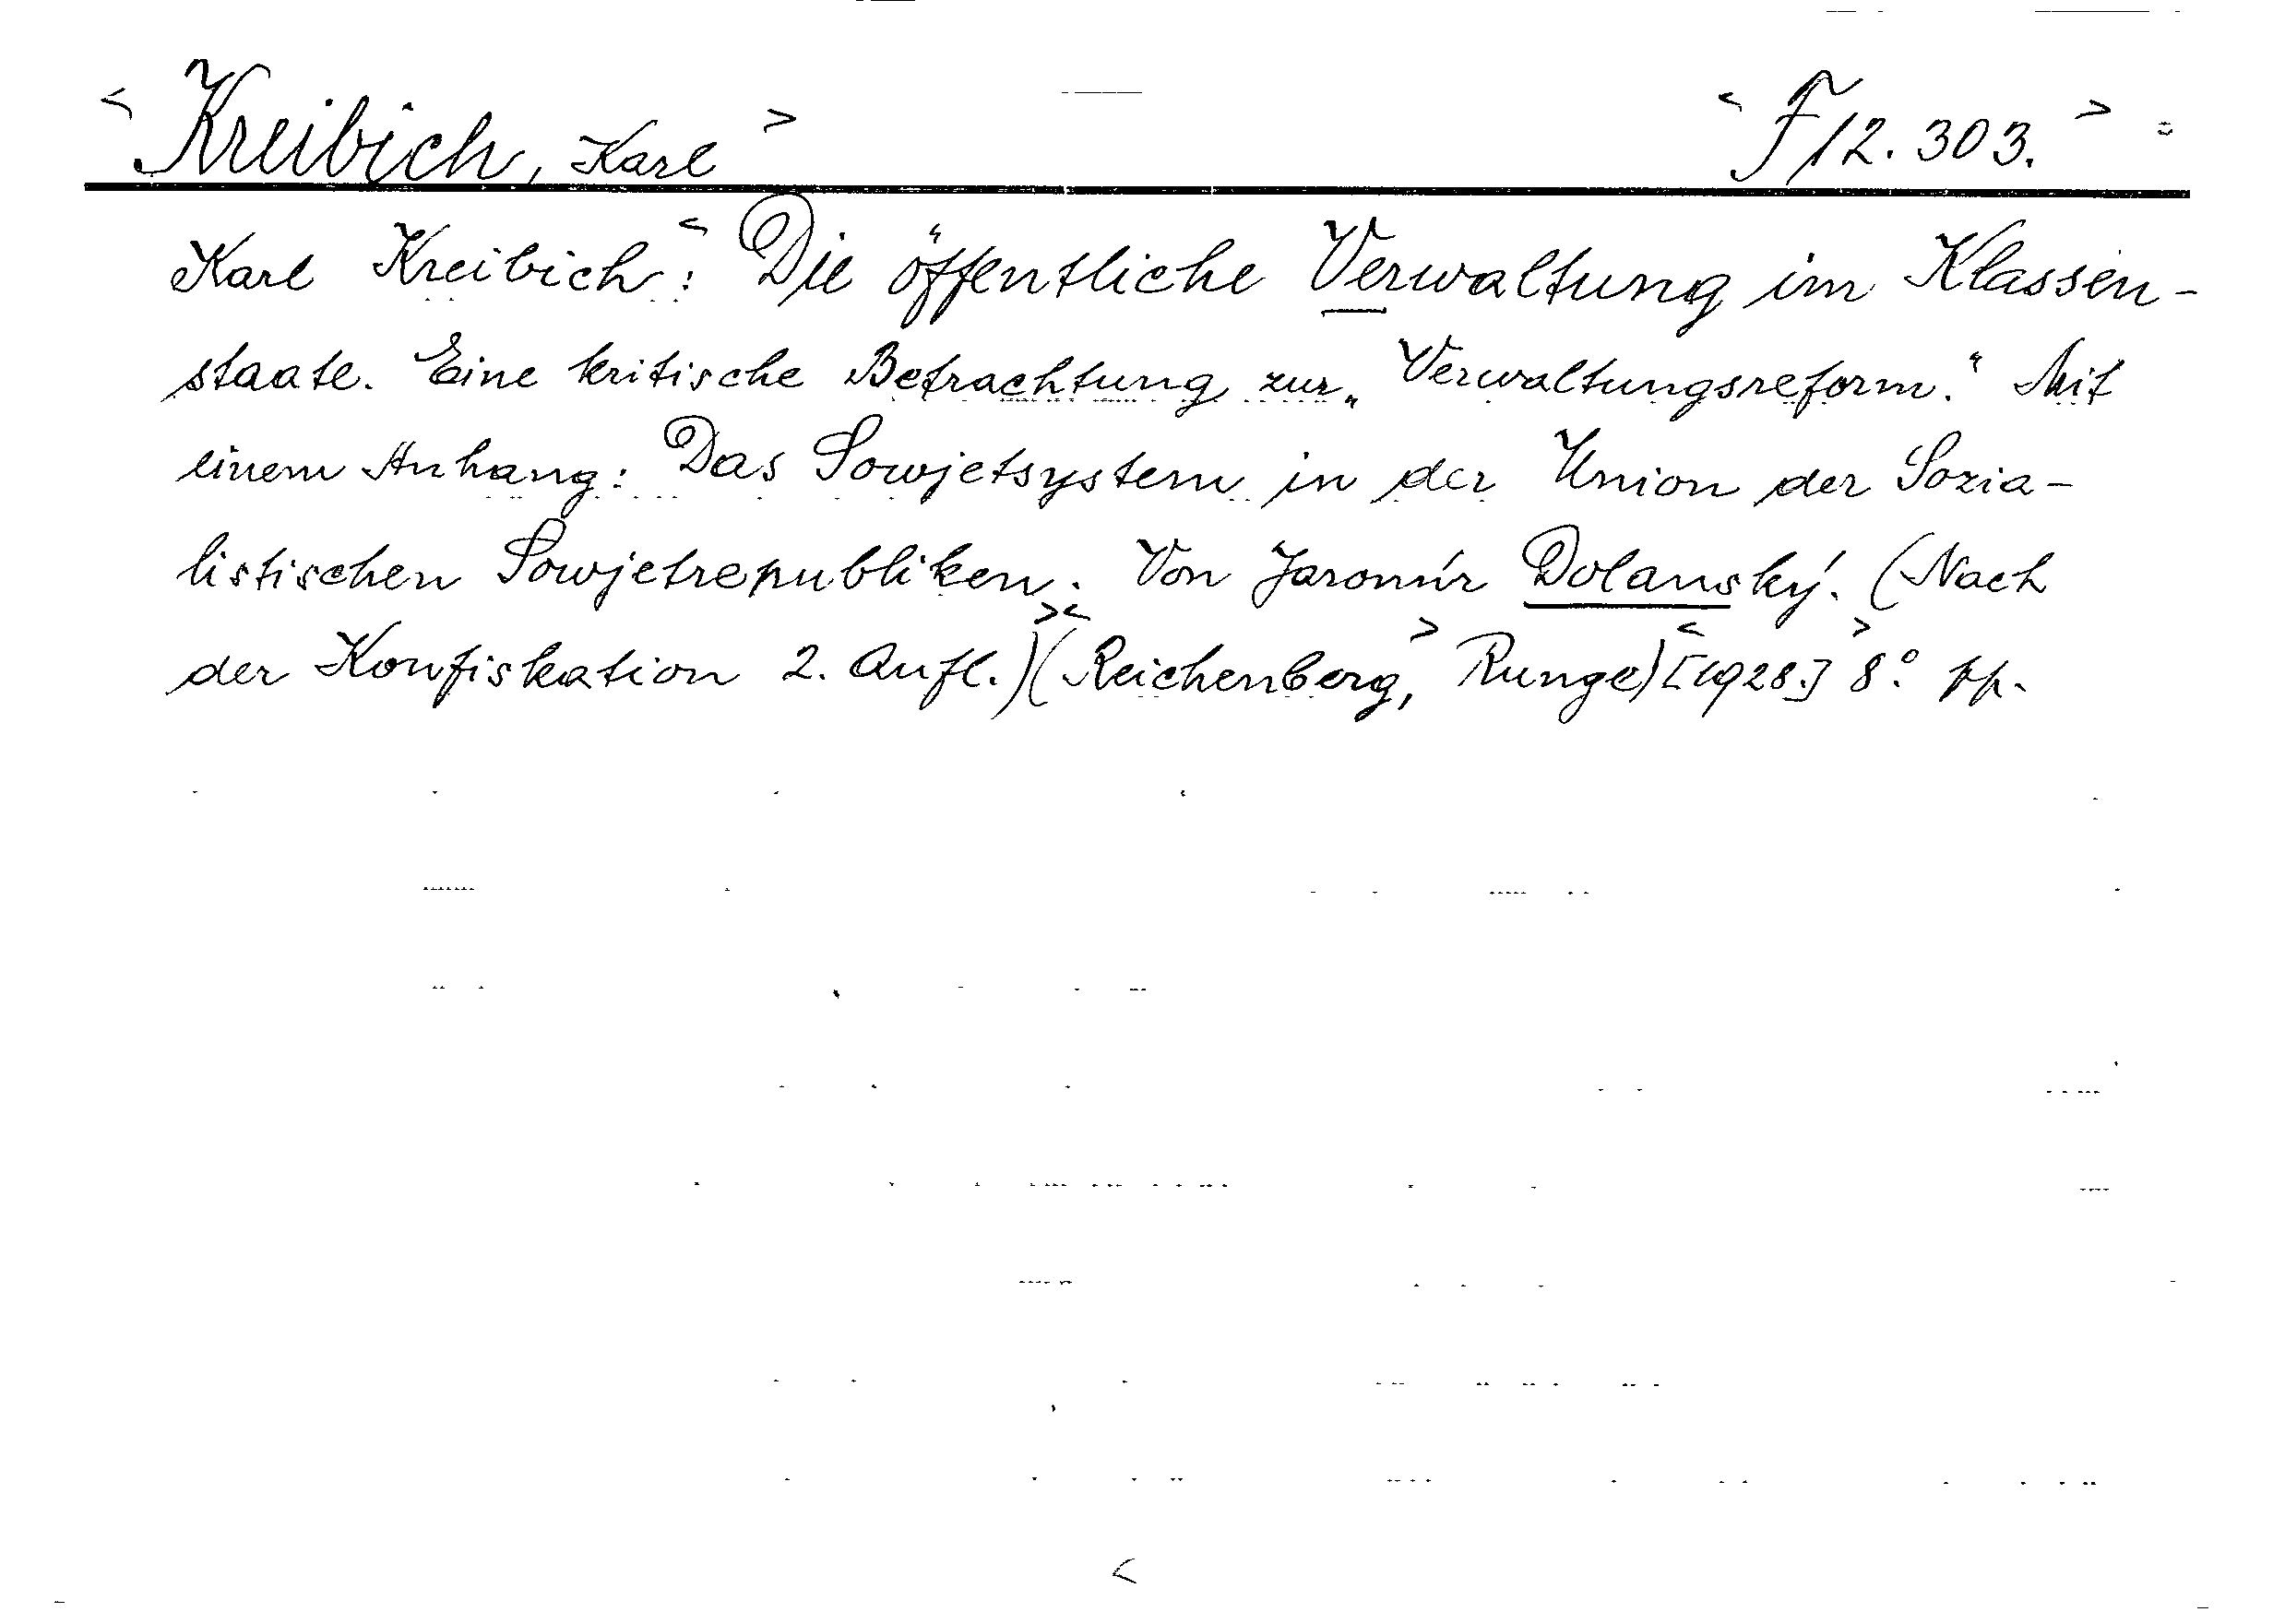 < Kreibich, Karl > < F 12.303. >
Karl Kreibich: < Die öffentliche Verwaltung im Klassen-
staate. Eine kritische Betrachtung zur „Verwaltungsreform.“ Mit
einem Anhang: Das Sowjetsystem in der Union der Sozia-
listischen Sowjetrepubliken. Von Jaromír Dolanský. (Nach
der Konfiskation 2. Aufl.) >< (Reichenberg, > Runge) < [1928.] > 8°.